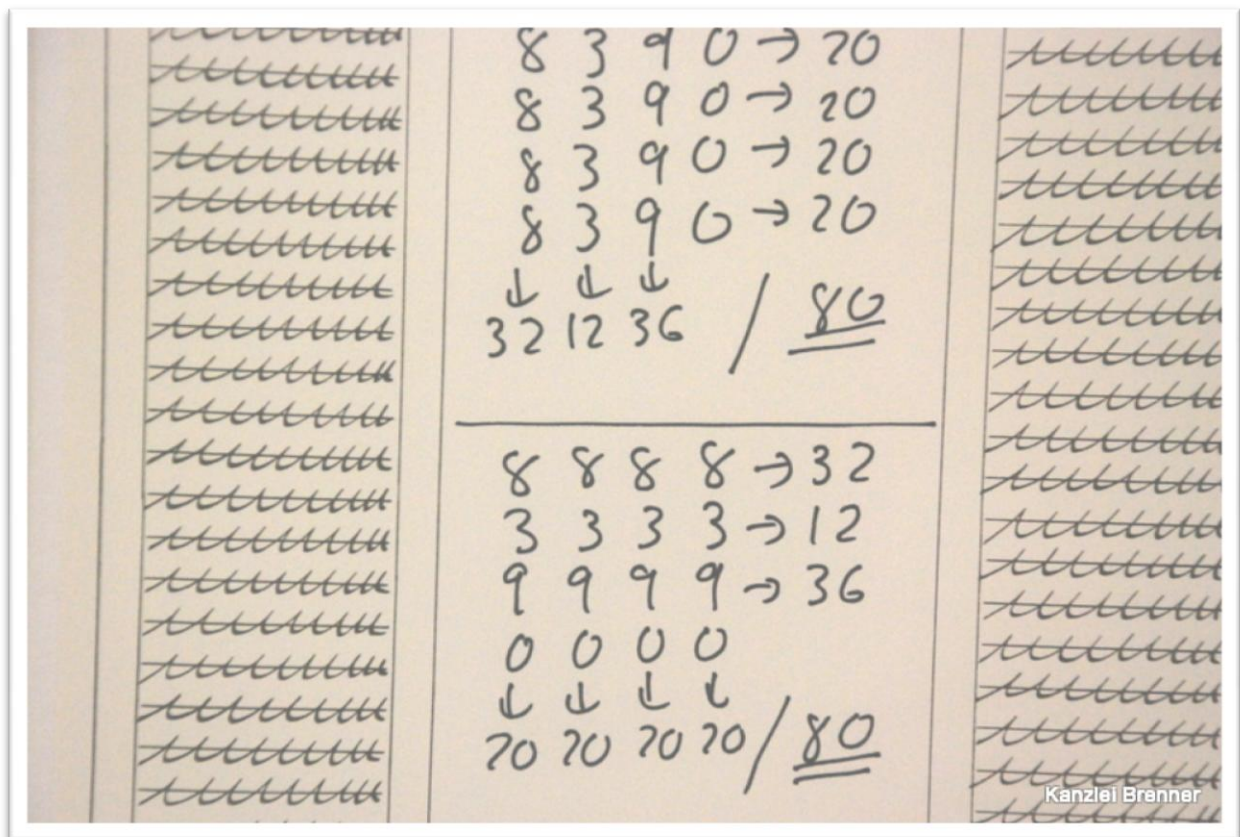 8 3 9 0 → 20
8 3 9 0 → 20
8 3 9 0 → 20
8 3 9 0 → 20
↓ ↓ ↓
32 12 36 / 80
8 8 8 8 → 32
3 3 3 3 → 12
9 9 9 9 → 36
0 0 0 0
↓ ↓ ↓ ↓
20 20 20 20 / 80
Kanzlei Brenner